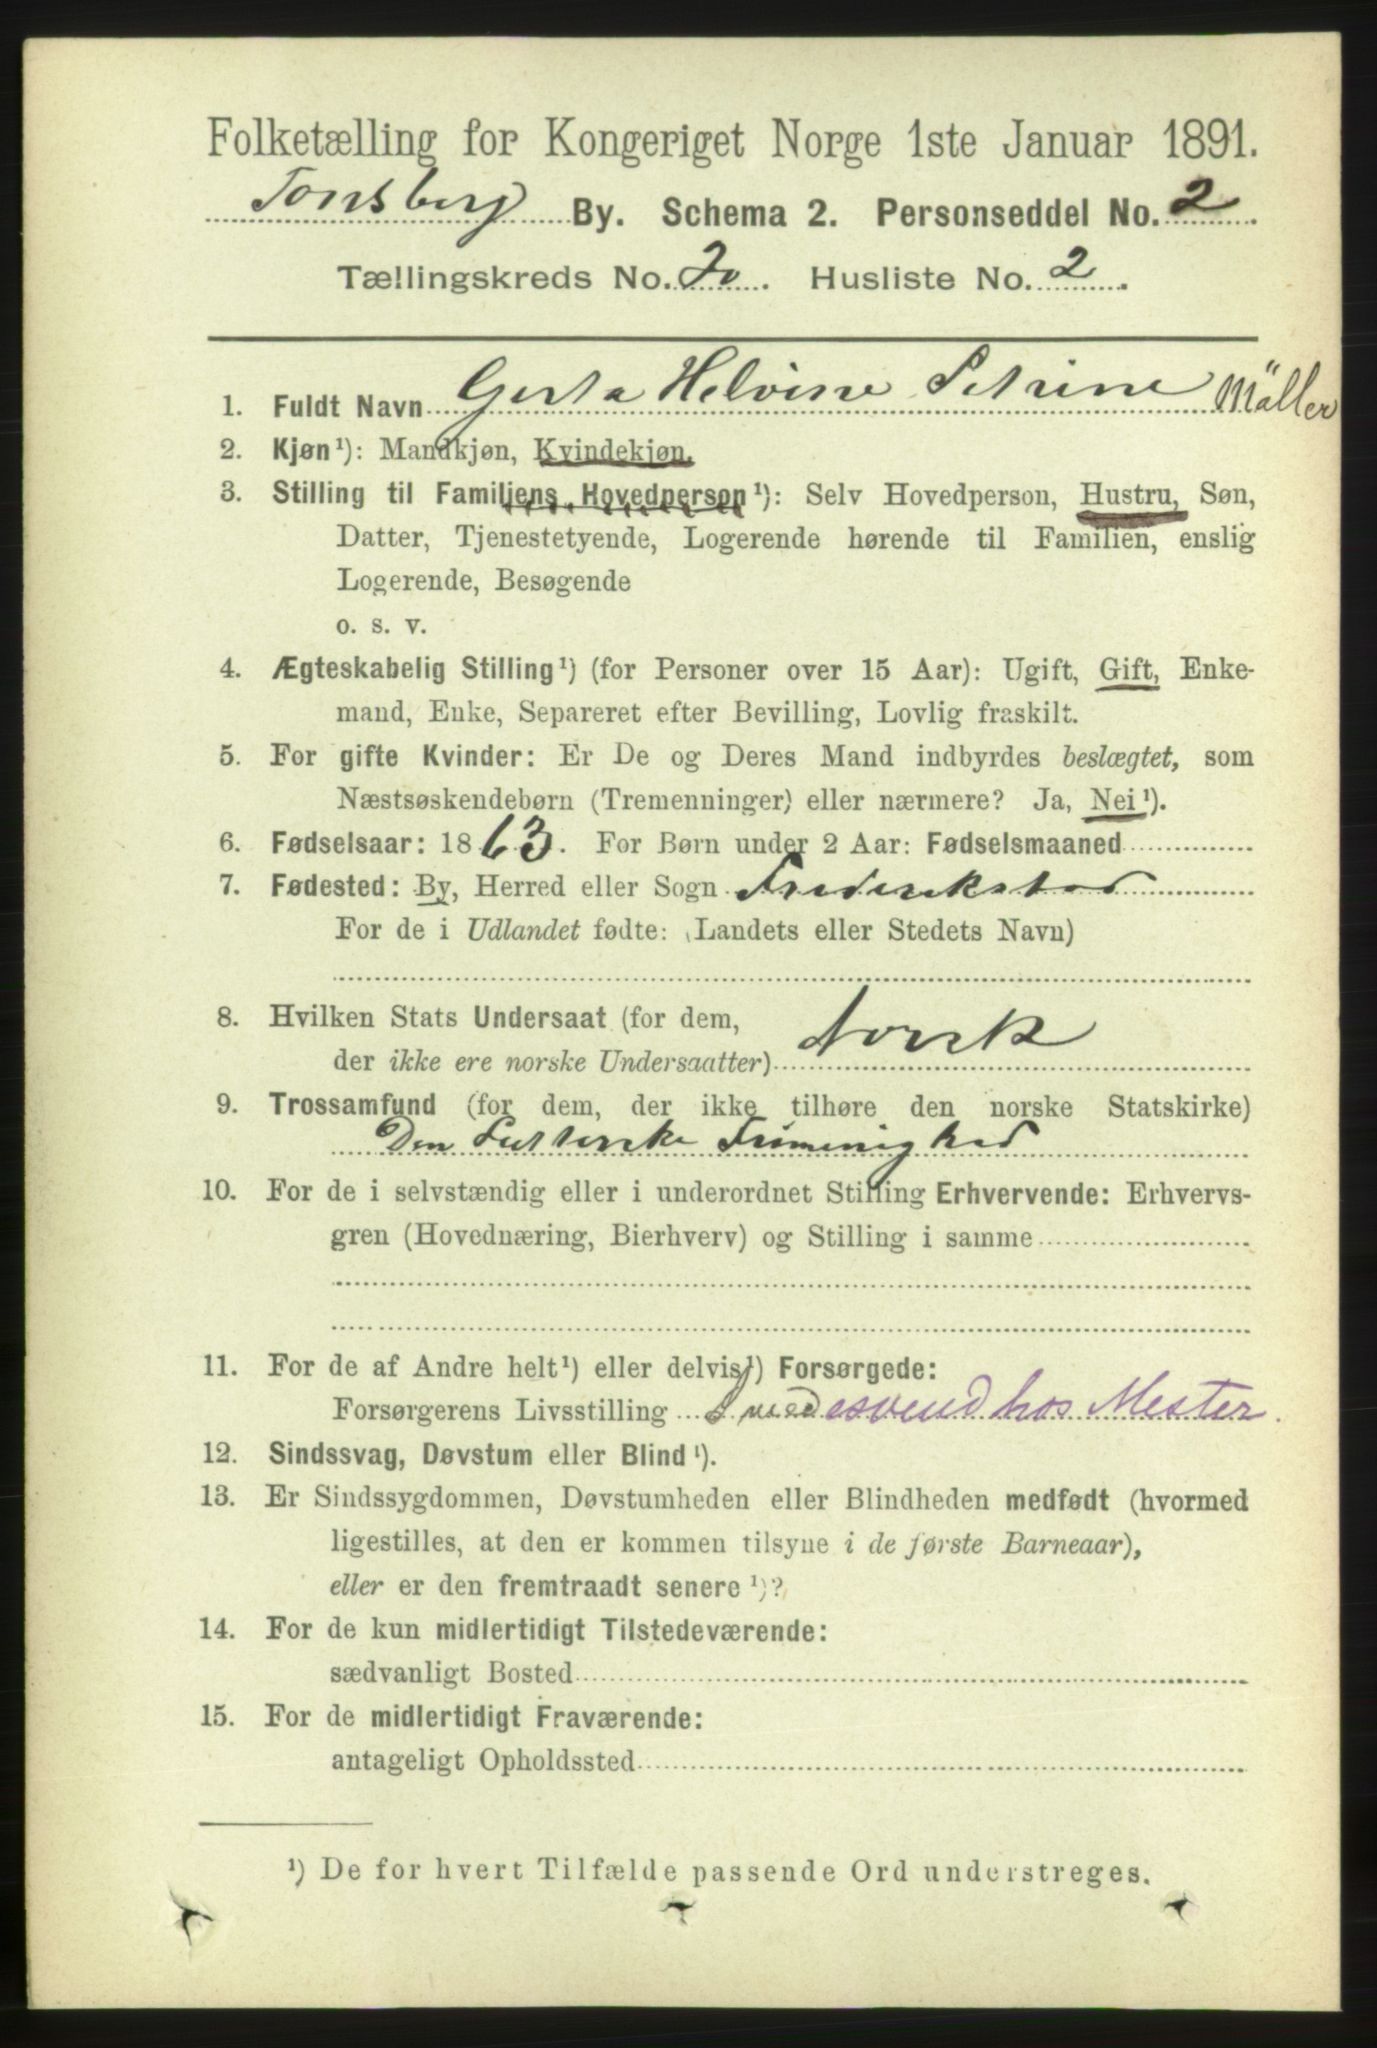 Folketælling for Kongeriget Norge 1ste Januar 1891.
Tønsberg By. Schema 2. Personseddel No. 2.
Tællingskreds No. 20. Husliste No. 2.
1. Fuldt Navn Gerta Helvine Petrine Möller
2. Kjøn¹): Mandkjøn, Kvindekjøn.
3. Stilling til Familjens Hovedperson¹): Selv Hovedperson, Hustru, Søn,
Datter, Tjenestetyende, Logerende hørende til Familien, enslig
Logerende, Besøgende
o. s. v.
4. Ægteskabelig Stilling¹) (for Personer over 15 Aar): Ugift, Gift, Enke-
mand, Enke, Separeret efter Bevilling, Lovlig fraskilt.
5. For gifte Kvinder: Er De og Deres Mand indbyrdes beslægtet, som
Næstsøskendebørn (Tremenninger) eller nærmere? Ja, Nei¹).
6. Fødselsaar: 1863. For Børn under 2 Aar: Fødselsmaaned
7. Fødested: By, Herred eller Sogn Frederikstad
For de i Udlandet fødte: (Landets eller Stedets Navn)
8. Hvilken Stats Undersaat (for dem,
der ikke ere norske Undersaatter) Norsk
9. Trossamfund (for dem, der ikke tilhøre den norske Statskirke)
Den Lutterske Frimenighed
10. For de i selvstændig eller i underordnet Stilling Erhvervende: Erhvervs-
gren (Hovednæring, Bierhverv) og Stilling i samme
11. For de af Andre helt¹) eller delvis¹) Forsørgede:
Forsørgerens Livsstilling Smedesvend hos Mester.
12. Sindssvag, Døvstum eller Blind¹).
13. Er Sindssygdommen, Døvstumheden eller Blindheden medfødt (hvormed
ligestilles, at den er kommen tilsyne i de første Barneaar),
eller er den fremtraadt senere¹)?
14. For de kun midlertidigt Tilstedeværende:
sædvanligt Bosted
15. For de midlertidigt Fraværende:
antageligt Opholdssted
¹) De for hvert Tilfælde passende Ord understreges.